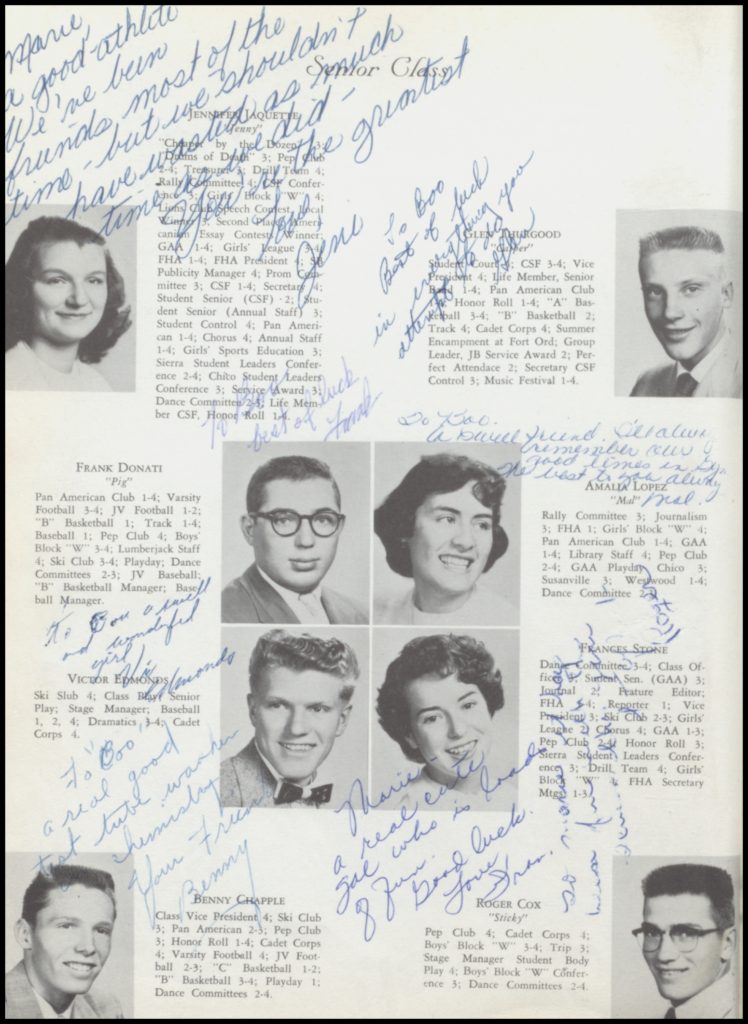 Senior Class
Marie,
a good athlete
We've been
friends most of the
time - but we shouldn't
have wasted as much
time as we did -
the greatest
JENNIFER JAQUETTE
"Jenny"
"Cheaper by the Dozen" 3;
"Drums of Death" 3; Pep Club
2-4; Treasurer 3; Drill Team 4;
Rally Committee 4; CSF Confer-
ence 3; Girls' Block "W" 4;
Lions Club Speech Contest, Local
Winner 3; Second Place Ameri-
canism Essay Contest, Winner;
GAA 1-4; Girls' League 3-4;
FHA 1-4; FHA President 4; SB
Publicity Manager 4; Prom Com-
mittee 3; CSF 1-4; Secretary 4;
Student Senior (CSF) 2; Stu-
dent Senior (Annual Staff) 3;
Student Control 4; Pan Ameri-
can 1-4; Chorus 4; Annual Staff
1-4; Girls' Sports Education 3;
Sierra Student Leaders Confer-
ence 2-4; Chico Student Leaders
Conference 3; Service Award 3;
Dance Committee 2-3, Life Mem-
ber CSF, Honor Roll 1-4.
To Boo
Best of luck
in everything you
attempt to do
Glen
GLEN THURGOOD
"Casper"
Student Court 4; CSF 3-4; Vice
President 4; Life Member, Senior
Band 1-4; Pan American Club
Honor Roll 1-4; "A" Bas-
ketball 3-4; "B" Basketball 2;
Track 4; Cadet Corps 4; Summer
Encampment at Fort Ord; Group
Leader, JB Service Award 2; Per-
fect Attendace 2; Secretary CSF
Control 3; Music Festival 1-4.
To Boo
best of luck
Frank
FRANK DONATI
"Pig"
Pan American Club 1-4; Varsity
Football 3-4; JV Football 1-2;
"B" Basketball 1; Track 1-4;
Baseball 1; Pep Club 4; Boys'
Block "W" 3-4; Lumberjack Staff
4; Ski Club 3-4; Playday; Dance
Committees 2-3; JV Baseball;
"B" Basketball Manager; Base-
ball Manager.
To Boo.
a swell friend I'll always
remember our
good times in
the best to you always
Mal.
AMALIA LOPEZ
"Mal"
Rally Committee 3; Journalism
3; FHA 1; Girls' Block "W" 4;
Pan American Club 1-4; GAA
1-4; Library Staff 4; Pep Club
2-4; GAA Playday Chico 3;
Susanville 3; Westwood 1-4;
Dance Committee 2-3.
To Boo a swell
and wonderful
girl
Vic Edmonds
VICTOR EDMONDS
Ski Slub 4; Class Play; Senior
Play; Stage Manager; Baseball
1, 2, 4; Dramatics 3-4; Cadet
Corps 4.
FRANCES STONE
Dance Committee 3-4; Class Of-
ficer Student Sen. (GAA) 3;
Journal 2; Feature Editor;
FHA 3-4; Reporter 1; Vice
President 3; Ski Club 2-3; Girls'
League 2; Chorus 4; GAA 1-3;
Pep Club 2-4; Honor Roll 3;
Sierra Student Leaders Confer-
ence 3; Drill Team 4; Girls'
Block "W" 4; FHA Secretary
Mtgs 1-3.
To "Boo",
a real good
test tube washer
chemistry
Your Friend
Benny
Marie -
a real cute
gal who is loads
of fun.
Good luck.
Love,
Fran.
BENNY CHAPPLE
Class Vice President 4; Ski Club
3; Pan American 2-3; Pep Club
3; Honor Roll 1-4; Cadet Corps
4; Varsity Football 4; JV Foot-
ball 2-3; "C" Basketball 1-2;
"B" Basketball 3-4; Playday 1;
Dance Committees 2-4.
ROGER COX
"Sticky"
Pep Club 4; Cadet Corps 4;
Boys' Block "W" 3-4; Trip 3;
Stage Manager Student Body
Play 4; Boys' Block "W" Confer-
ence 3; Dance Committees 2-4.